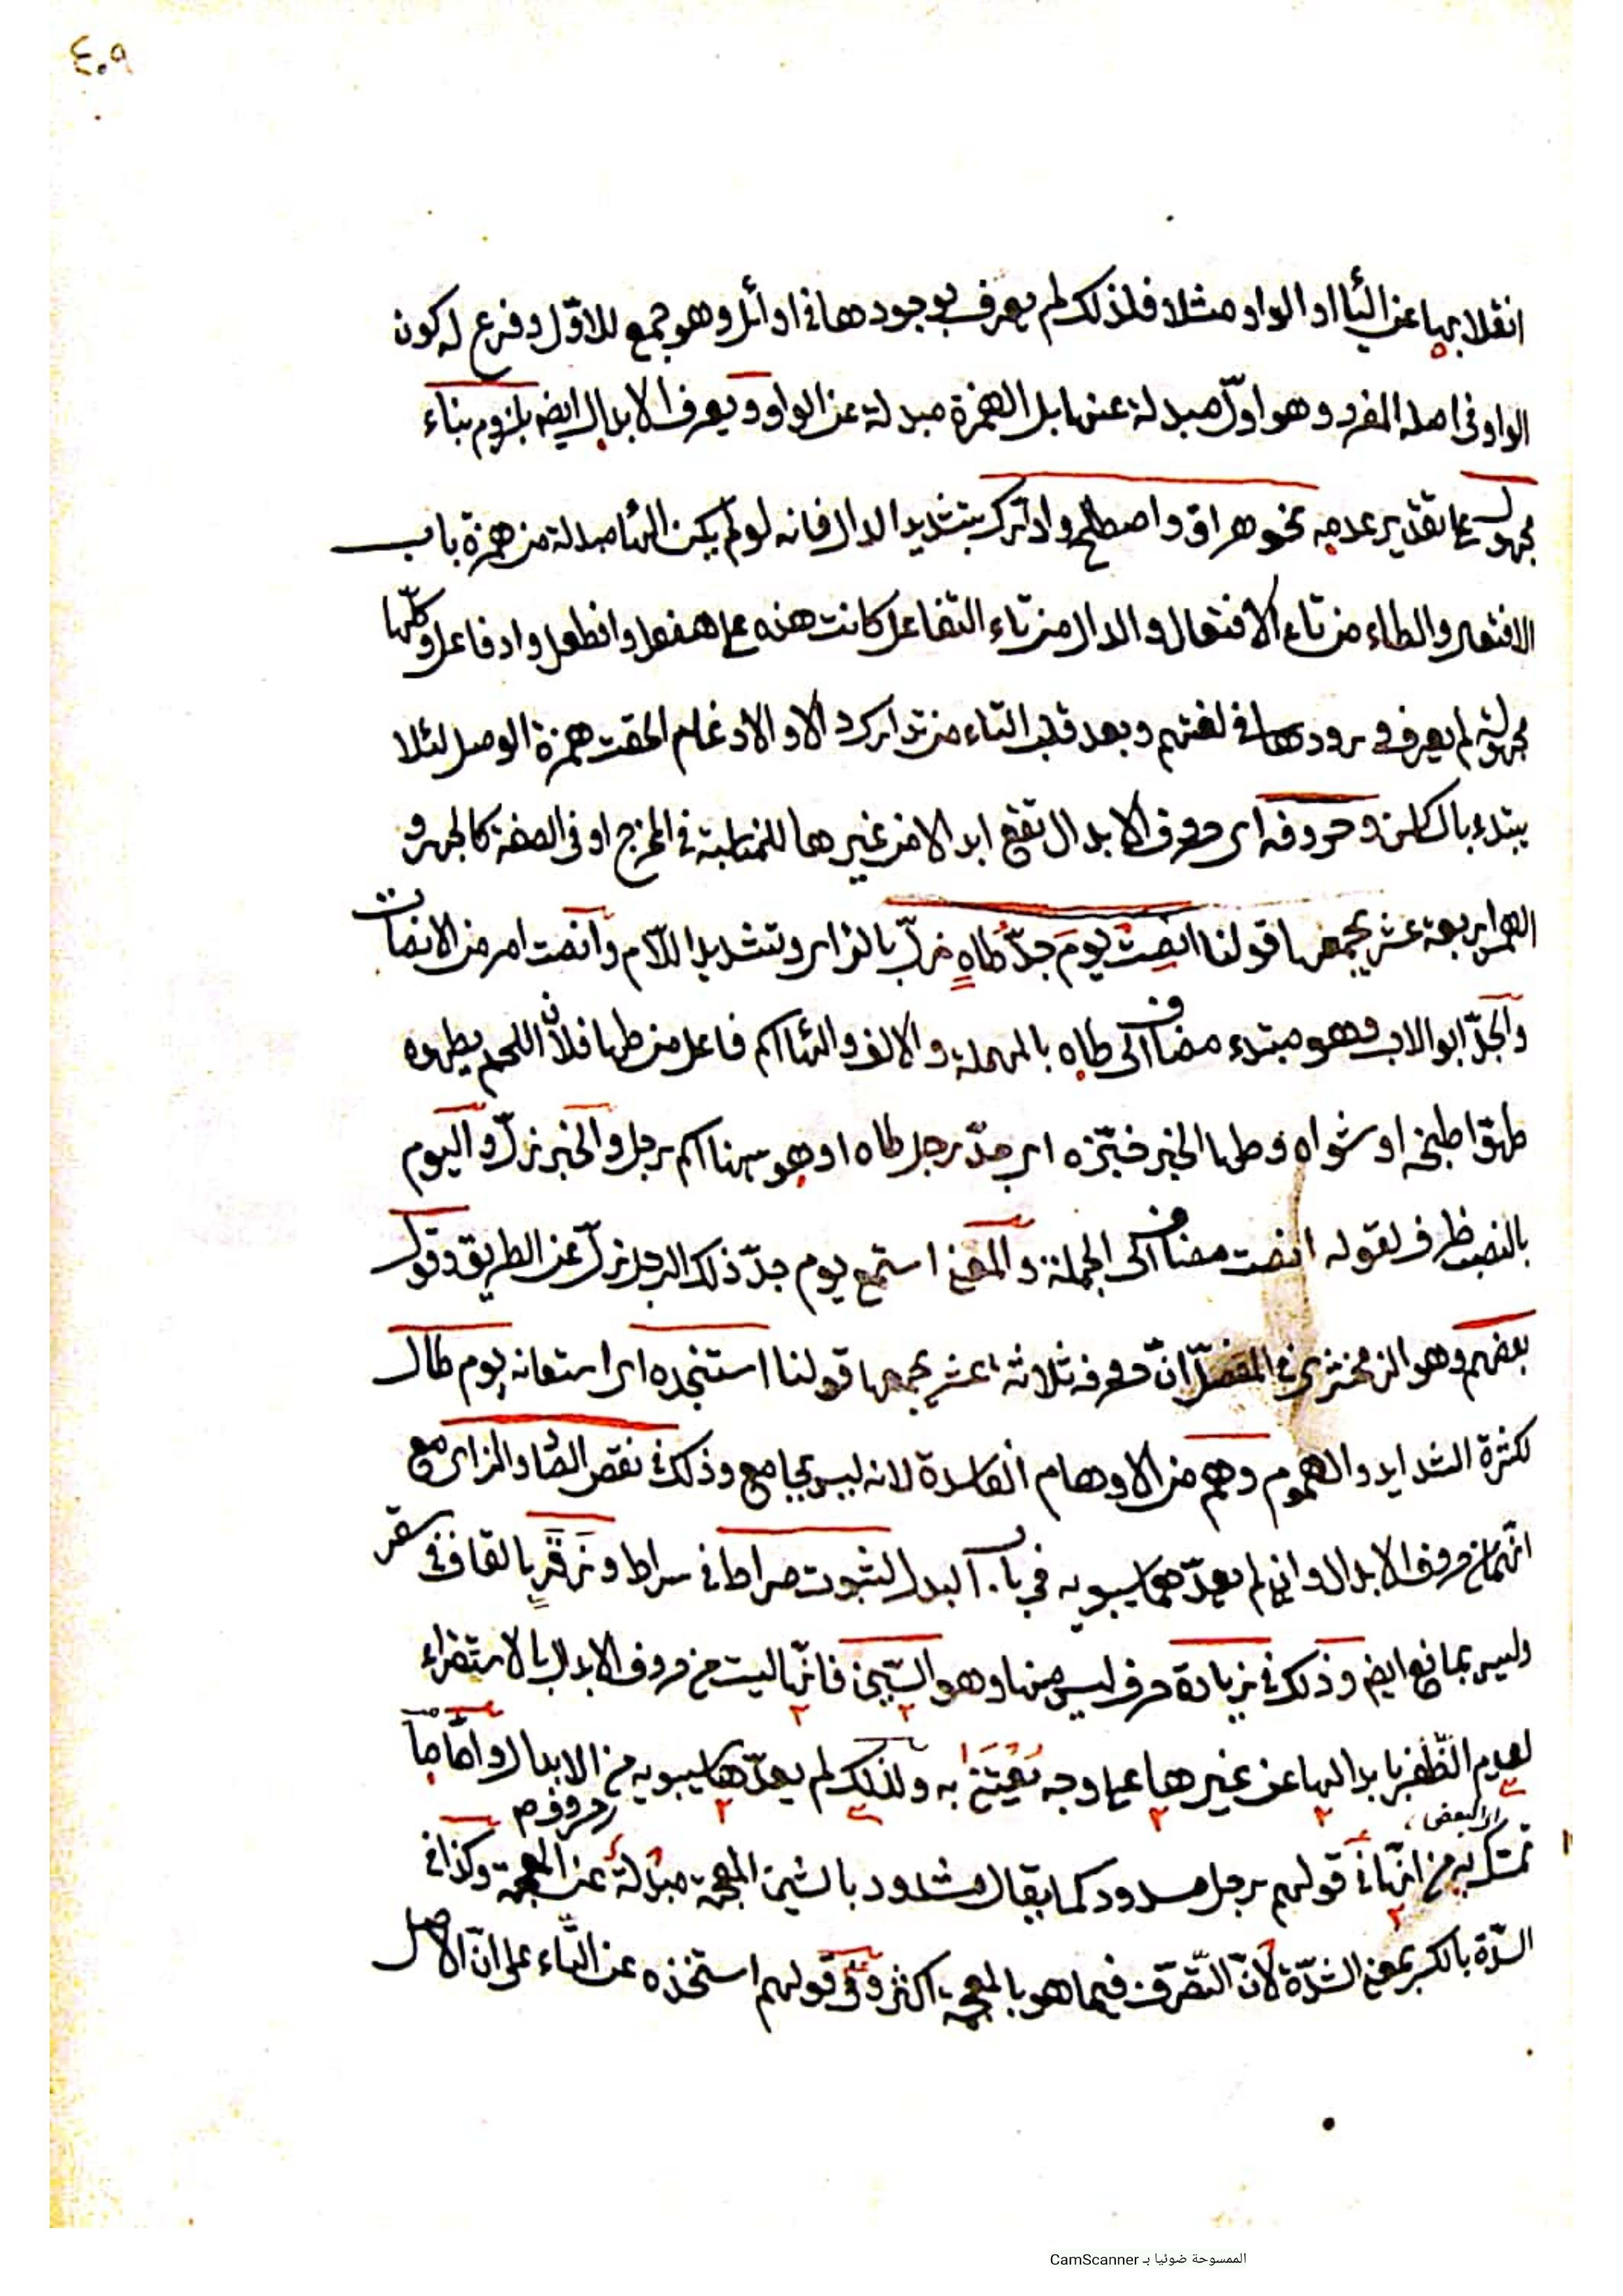 ٤٠٩
انقلابها عن الياء او الواو مثلا فلذلك لم يعرف بوجودها في اوائل وهو جمع للاوّل وفرع له كون
الواو في اصله المفرد وهو اوّل مبدلة عنها بل الهمزة مبدلة عن الواو ويعرف الابدال ايضا بلزوم بناء
مجهول على تقدير عدمه نحو هراق واصطلح وادّارك بتشديد الدال فانه لو لم يكن الهاء مبدلة من همزة باب
الافعال والطاء من تاء الافتعال والدال من تاء التفاعل كانت هذه على هفعل وافطعل وادفاعل وكلّها
مجهولة لم يعرف ورودها في لغتهم وبعد قلب التاء من تدارك دالا والادغام الحقت همزة الوصل لئلا
يبتدء بالساكن وحروفه اى حروف الابدال تقع ابدالا من غيرها للمناسبة في المخرج او في الصفة كالجهر و
الهمس اربعة عشر يجمعها قولنا انصت يوم جدّ طاهٍ زلّ بالزاى وتشديد اللّام وانصت امر من الانصات
والجدّ ابو الاب وهو مبتدء مضاف الى طاه بالمهملة والالف والهاء اسم فاعل من طها فلان اللحم يطهوه
طهوا طبخه او شواه وطها الخبز خبّزه اى جدّ رجل طاه او هو ههنا اسم رجل والخبر زلّ واليوم
بالنصب ظرف لقوله انصت مضاف الى الجملة والمعنى استمع يوم جدّ ذلك الرجل زلّ عن الطريق وقول
بعضهم وهو الزمخشرى في المفصّل انّ حروفه ثلاثة عشر يجمعها قولنا استنجده اى استعانه يوم طال
لكثرة الشدايد والهموم وهم من الاوهام الفاسدة لانه ليس بجامع وذلك في نقص الصاد والزاى مع
انّهما من حروف الابدال وان لم يعدّهما سيبويه في باب البدل لثبوت صراط في سراط وزَقَر بالقاف في سقر
وليس بمانع ايضا وذلك في زيادة حرف ليس منها وهو السّين فانّها ليست من حروف الابدال بالاستقراء
لعدم الظّفر بابدالها عن غيرها على وجه يعتنى به ولذلك لم يعدّها سيبويه من الابدال وامّا ما
حروف م
اى البعض
تمسّك به من انّها في قولهم رجل مسدود كما يقال مشدود بالشين المعجمة مبدلة عن المعجمة وكذا في
السّدّة بالكسر بمعنى الشدّة لانّ التّصرّف فيما هو بالمعجمة اكثر وفي قولهم استخذه عن التّاء على انّ الاصل
الممسوحة ضوئيا بـ CamScanner